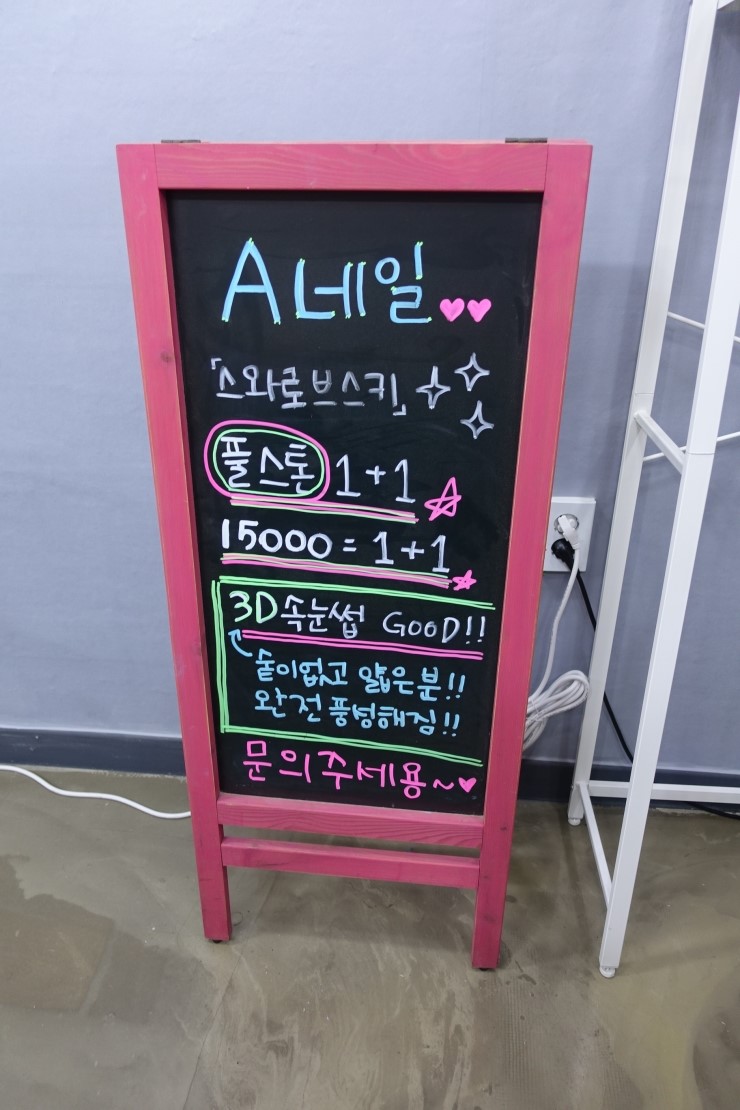 A네일
「스와로브스키」
풀스톤 1+1
15000 = 1+1
3D속눈썹 GOOD!!
숱이없고 얇은분!!
완전풍성해짐!!
문의주세용~